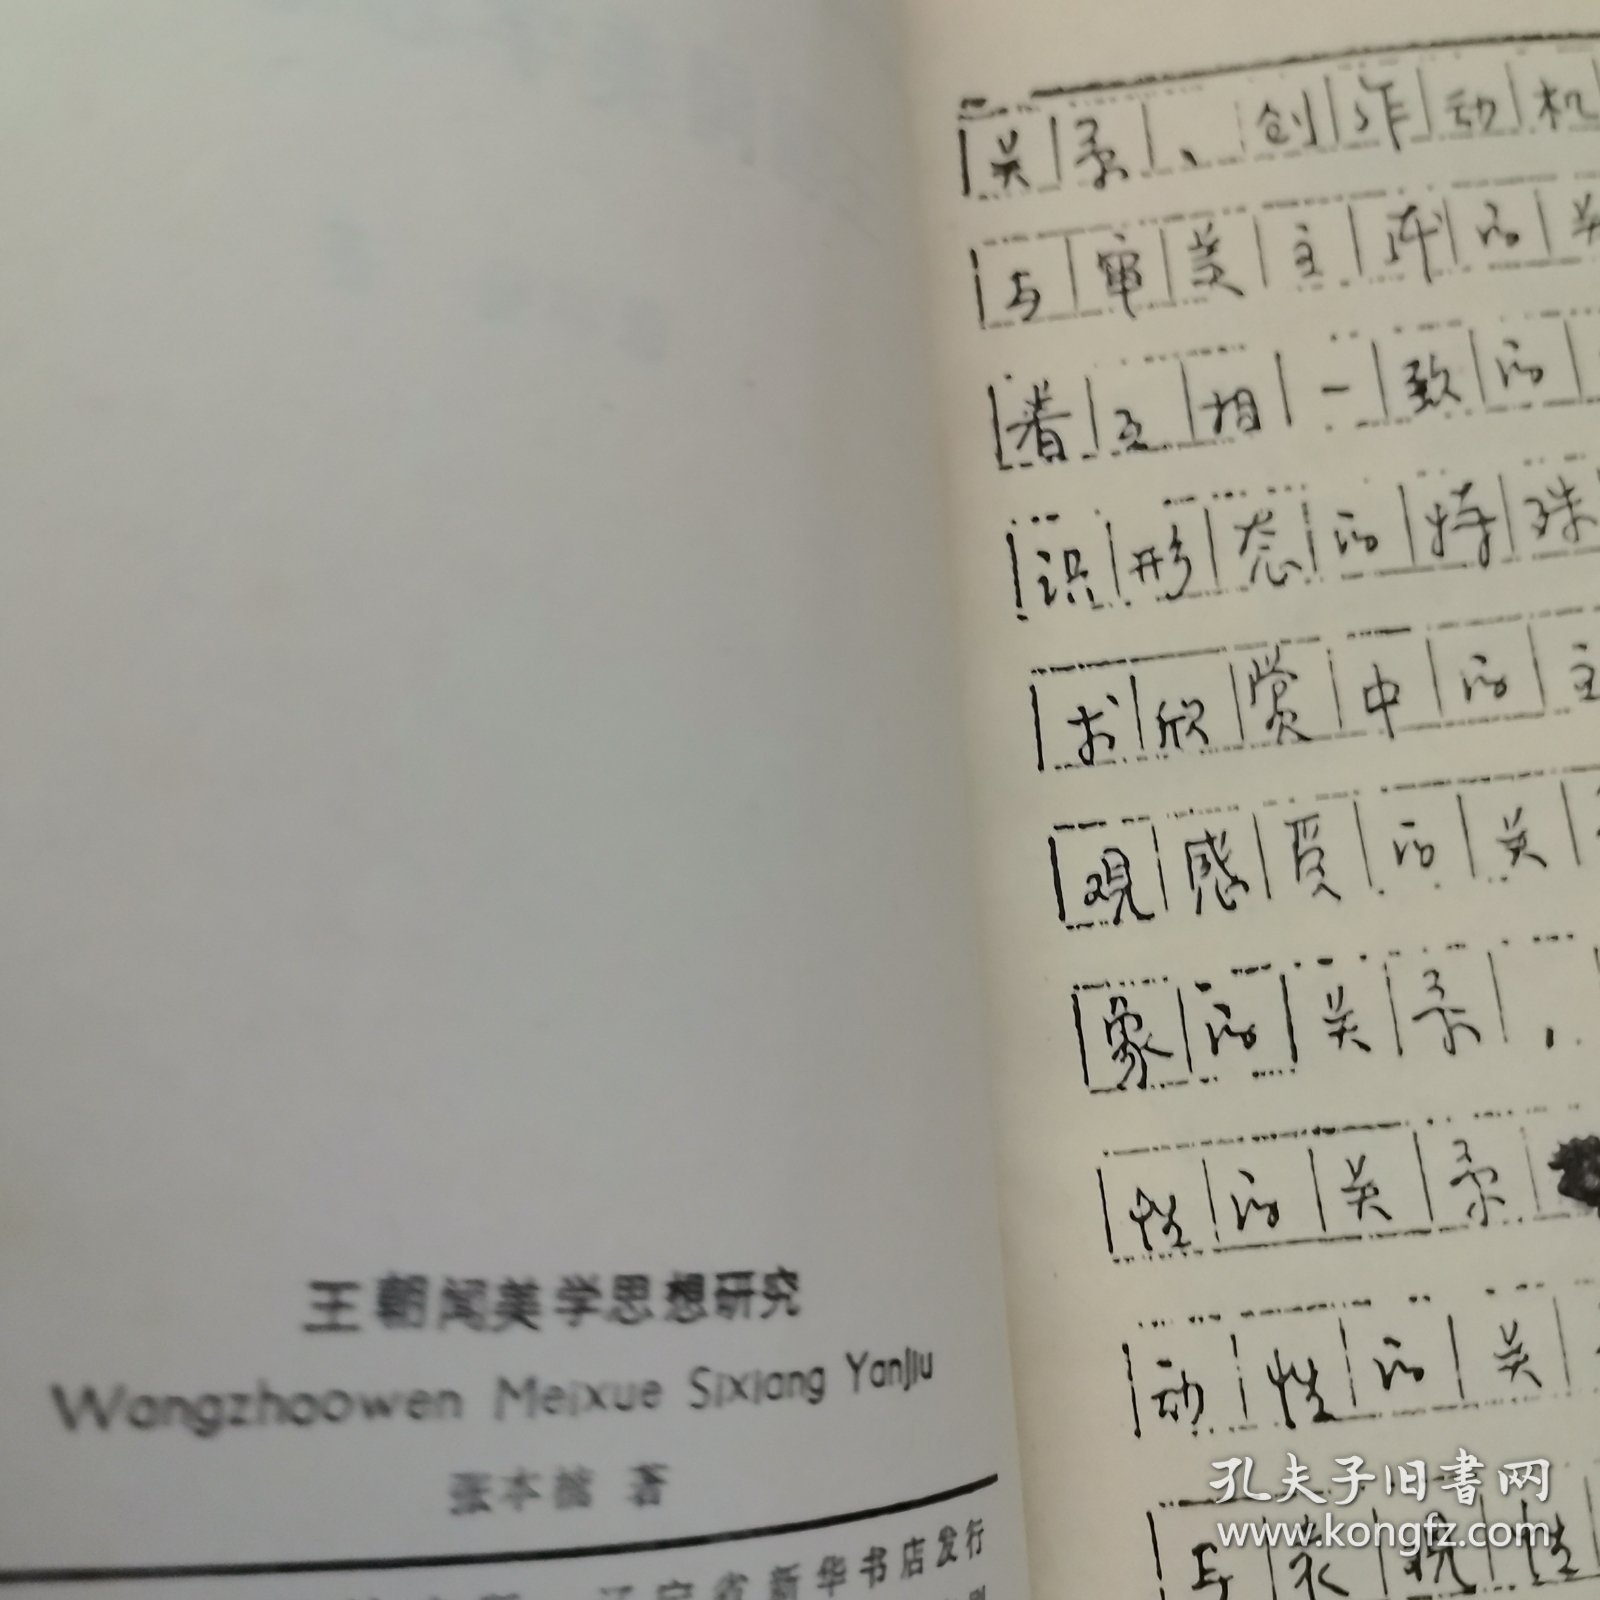 王朝闻美学思想研究
Wangzhaowen Meixue Sixiang Yanjiu
张本楠 著
辽宁省新华书店发行
关系、创作动机
与审美主体的关
着互相一致的
识形态的特殊
术欣赏中的主
观感受的关
象的关系，
性的关系
动性的关
与表现性
孔夫子旧书网
www.kongfz.com